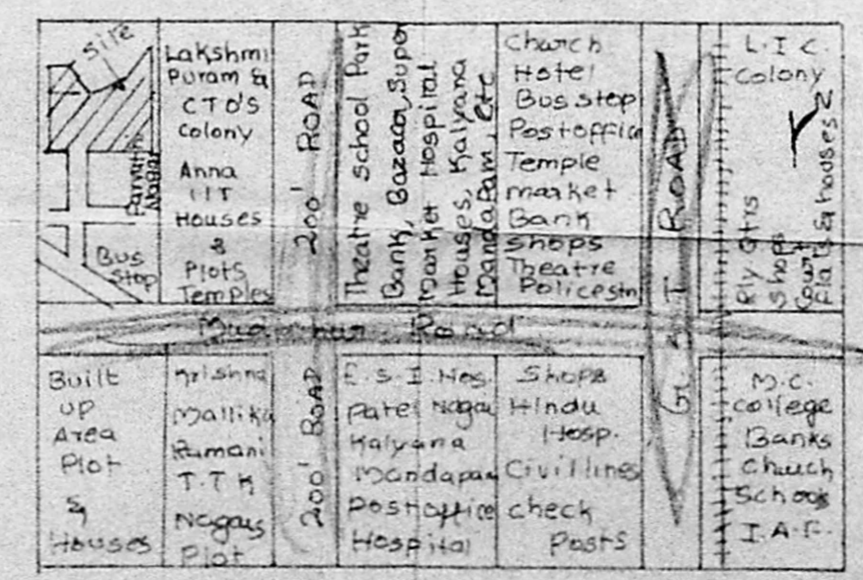 Site
Lakshmi
Puram &
CTO'S
Colony
Anna
IIT
Houses
&
Plots
Temples
Bus
Stop
200' ROAD
Theatre school Park
Bank, Bazaar, Super
Market Hospital
Houses, Kalyana
Mandapam, etc
Church
Hotel
Bus stop
Postoffice
Temple
market
Bank
shops
Theatre
Policestn
G.S.T ROAD
L.I.C.
Colony
Rly Qtrs
Shops
Govt
Flats & houses
Road
Built
up
Area
Plot
&
Houses
Krishna
Mallika
Ramani
T.T.K
Nagars
Plot
200' ROAD
E.S.I. Hos.
Patel Nagar
Kalyana
Mandapam
Postoffice
Hospital
Shops
Hindu
Hosp.
Civil lines
check
Posts
M.C.
college
Banks
Church
School
I.A.F.